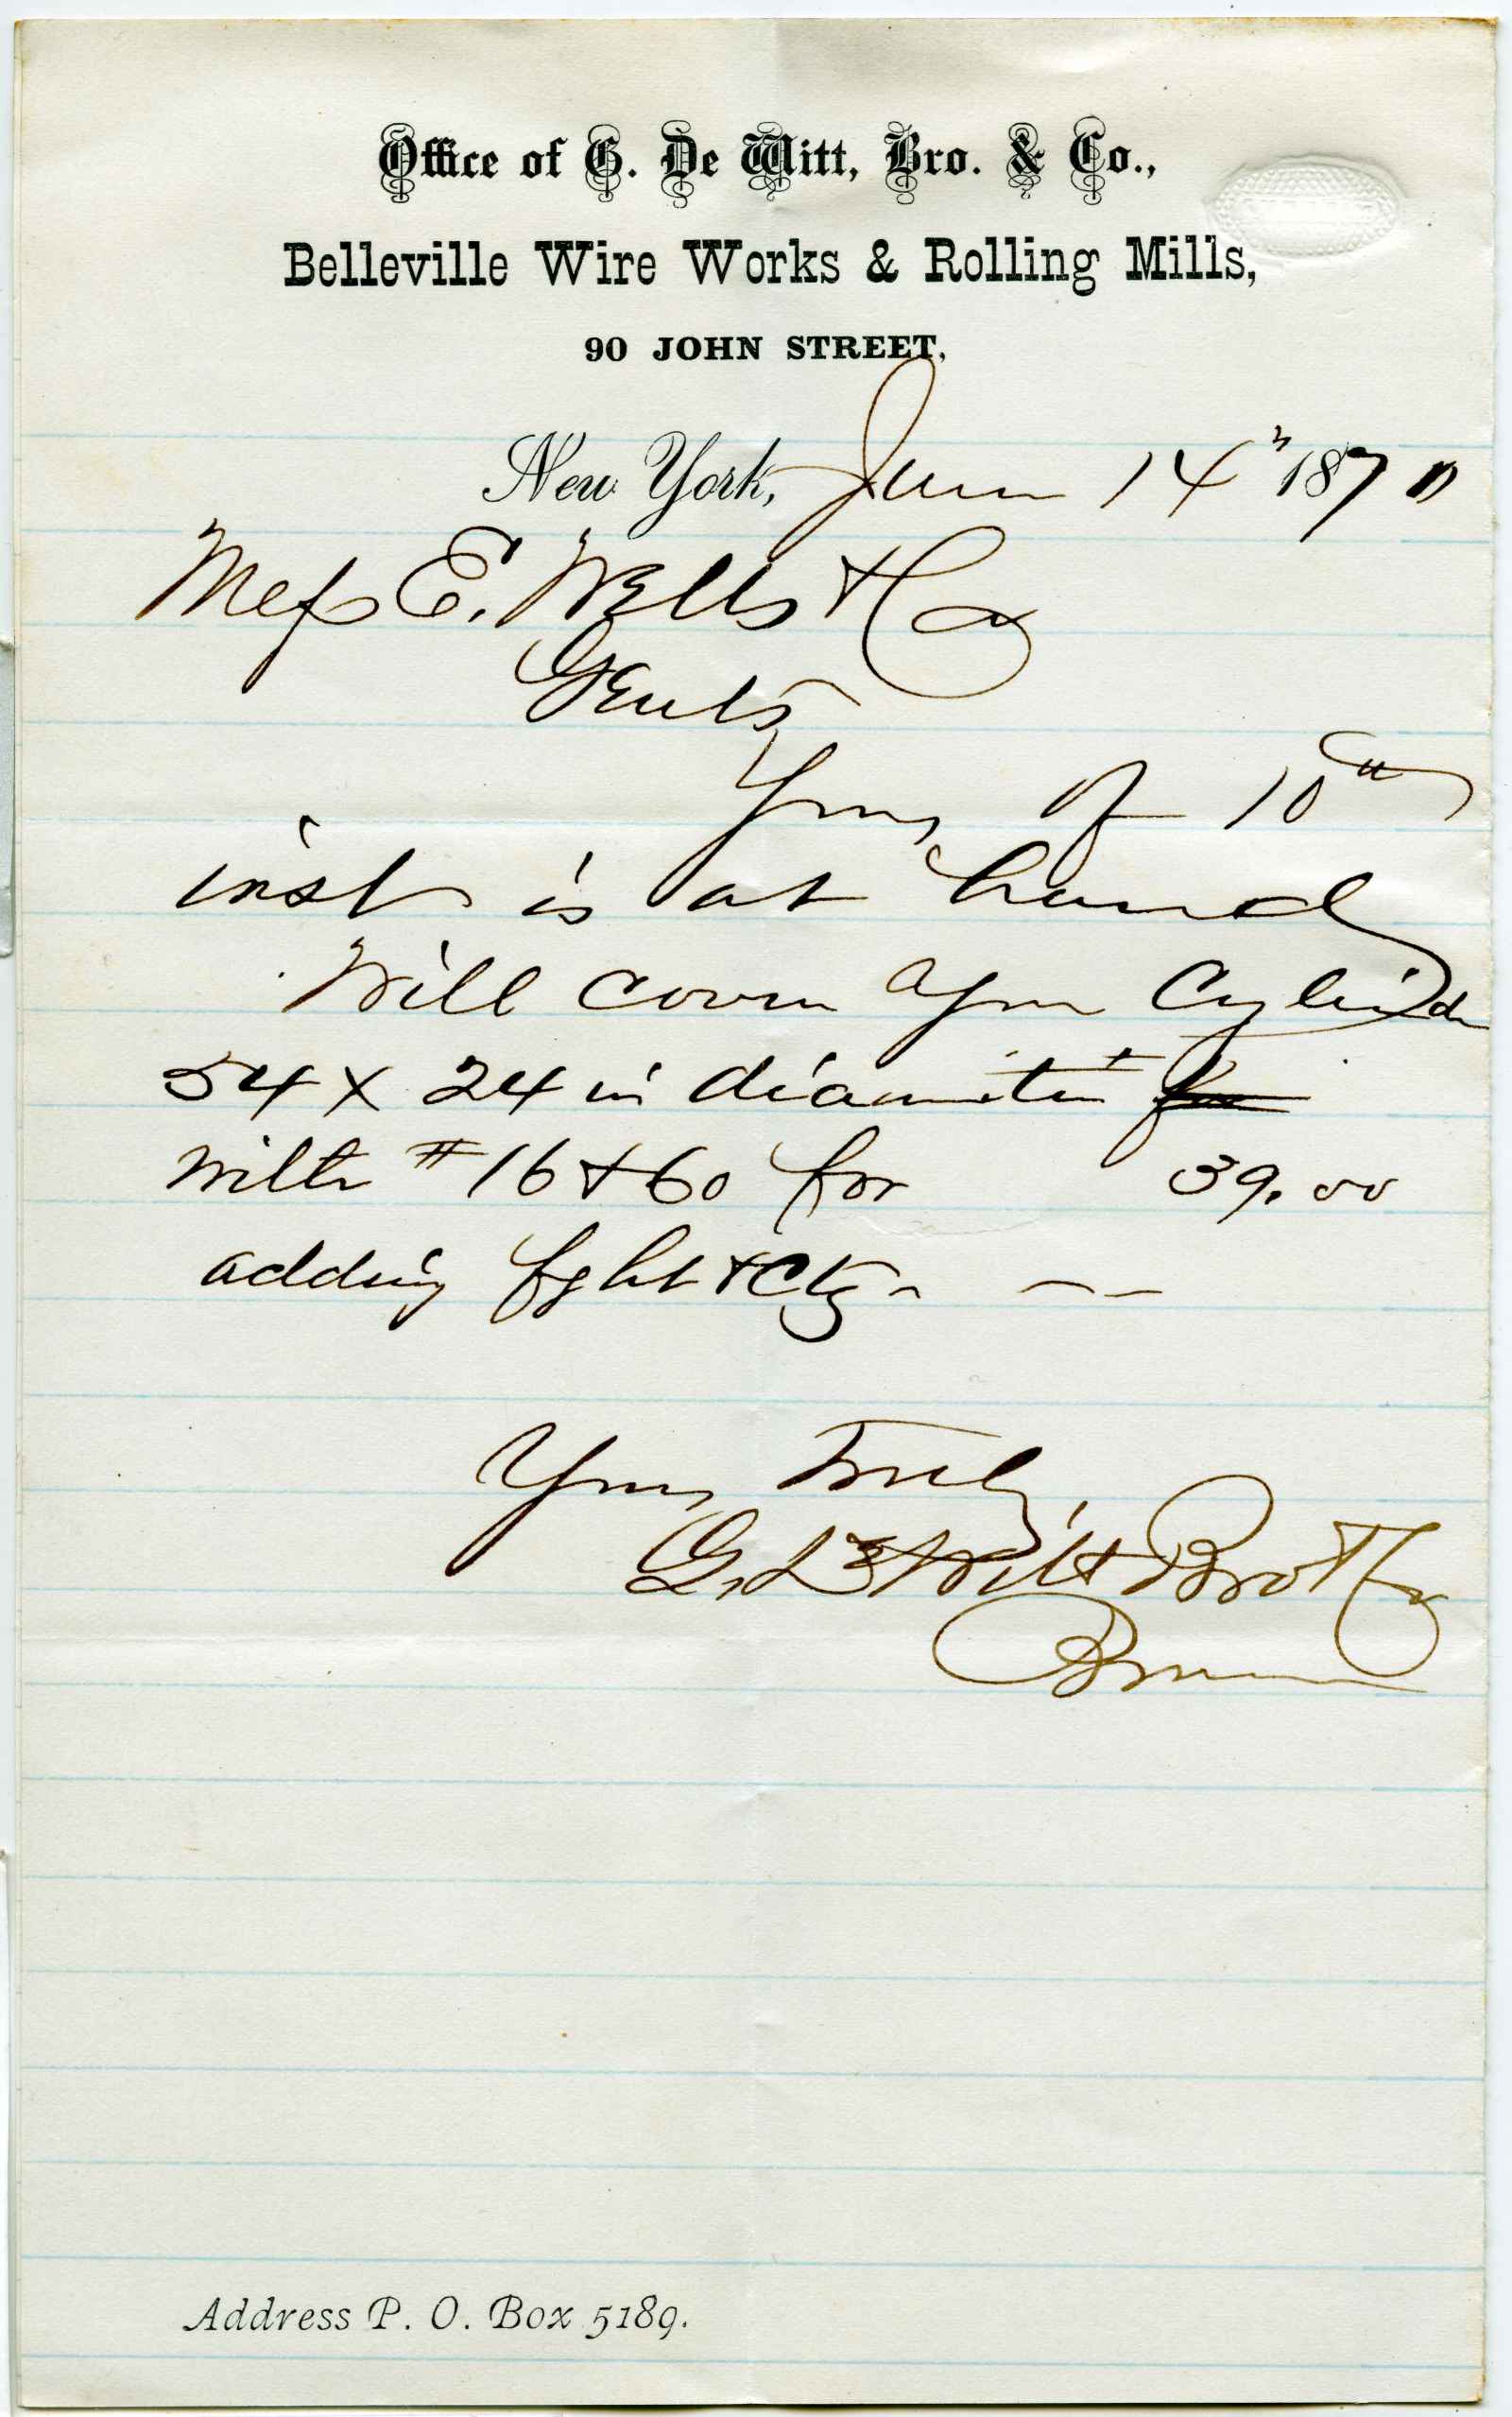 Office of G. De Witt, Bro. & Co.,
Belleville Wire Works & Rolling Mills,
90 JOHN STREET,
New York, June 14" 1870
Mess E. Wells & Co
Gents
Yours of 10th
inst is at hand
Will cover your Cylinder
54 x 24 in diameter for
with #16 & 60 for 39.00
adding fght & Ctg - - -
Yours Truly,
G. De Witt Bro & Co
Address P. O. Box 5189.